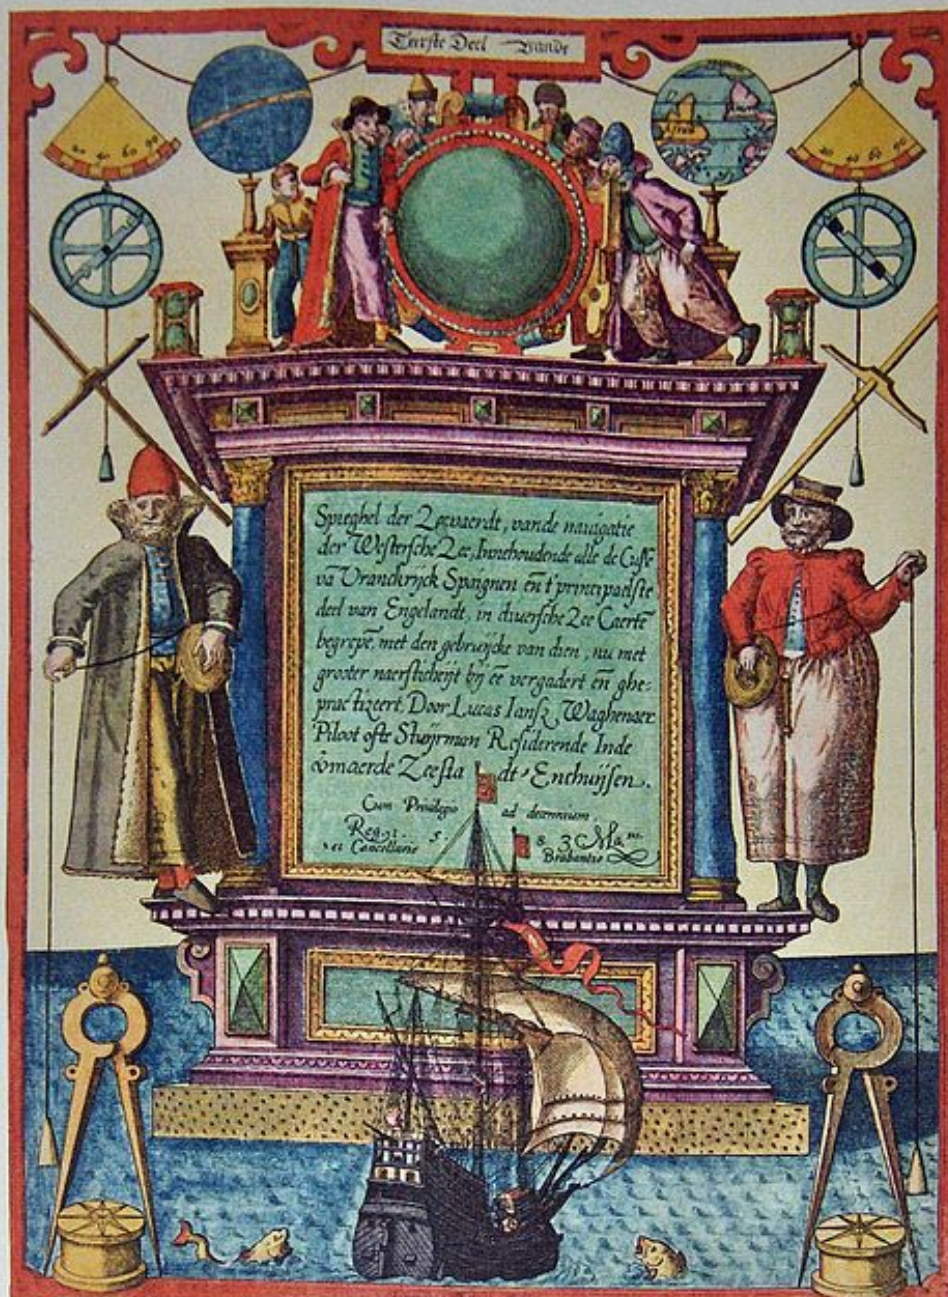 Eerste Deel vande
20 40 60 90
20 40 60 90
Spieghel der Zeevaerdt, vande navigatie
der Westersche Zee, Innehoudende alle de Custē
vā Vranckrijck Spaignen eñ t'principaelste
deel van Engelandt, in diversche Zee Caertē
begrepē, met den gebruijcke van dien, nu met
grooter naersticheijt bij eē vergadert eñ ghe=
practizeert, Door Lucas Iansz Waghenaer
Piloot ofte Stuijrman Residerende Inde
vmaerde Zeestadt Enchuijsen.
Cum Privilegio ad decennium.
Reg. 5. 8. 3 Ma.
et Cancellarie Brabantie